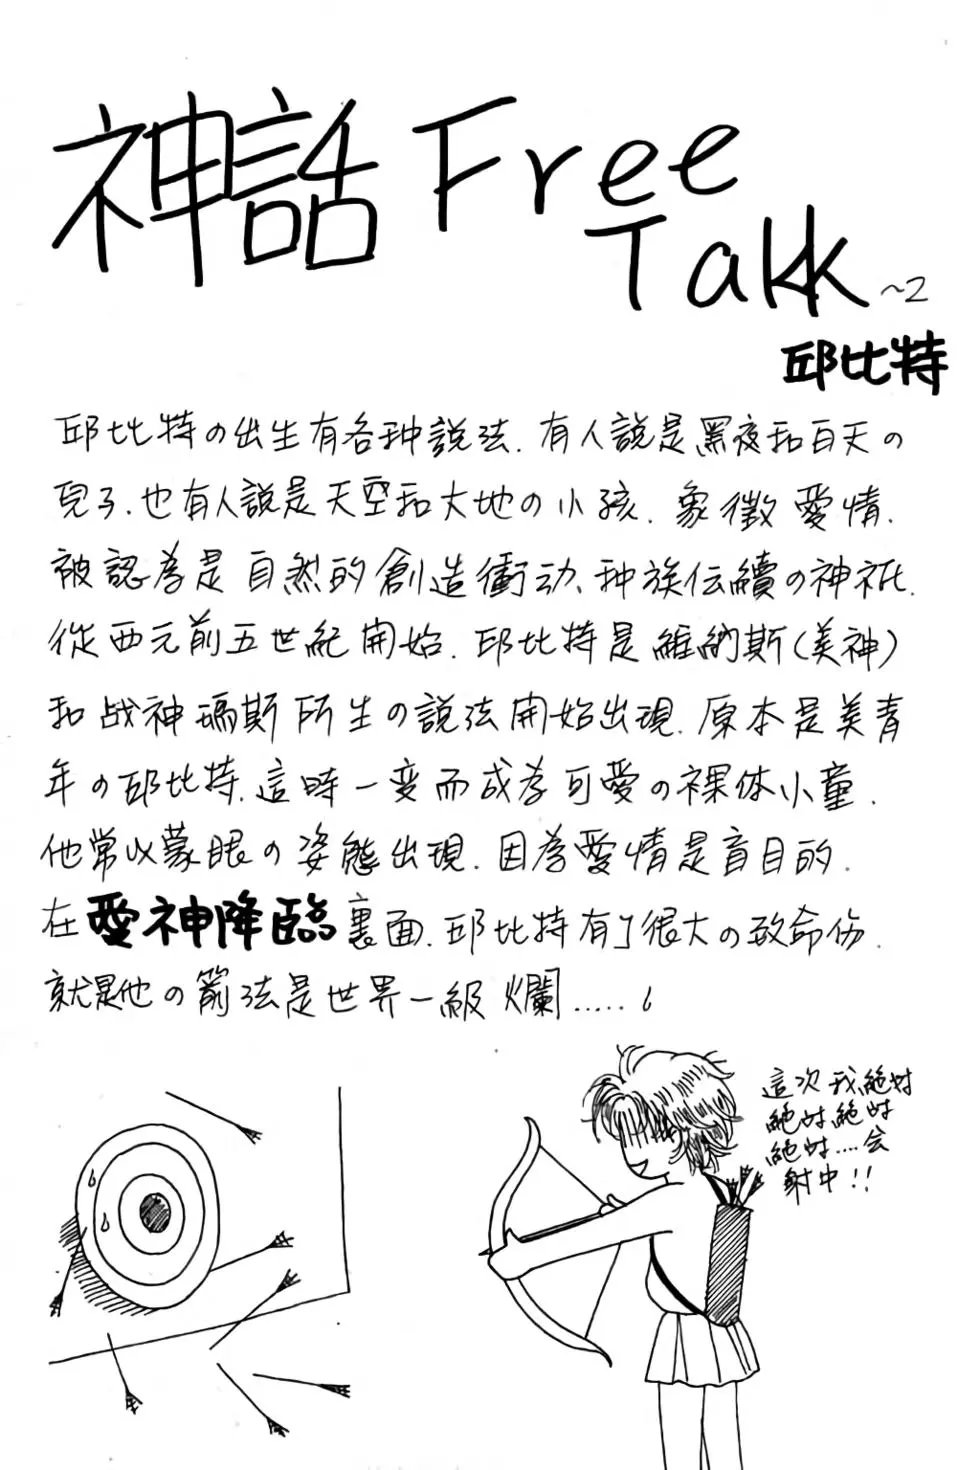 神話 Free
Talk ~2
邱比特
邱比特の出生有各种說法. 有人說是黑夜和白天の
兒子. 也有人說是天空和大地の小孩. 象徵愛情.
被認為是自然的創造衝动、种族伝續の神祇.
從西元前五世紀開始. 邱比特是維納斯(美神)
和战神瑪斯所生の說法開始出現. 原本是美青
年の邱比特. 這時一変而成為可愛の裸体小童.
他常以蒙眼の姿態出現. 因為愛情是盲目的.
在愛神降臨裏面. 邱比特有了很大の致命伤.
就是他の箭法是世界一級爛.....。
這次我絶対
絶対絶対
絶対....会
射中!!